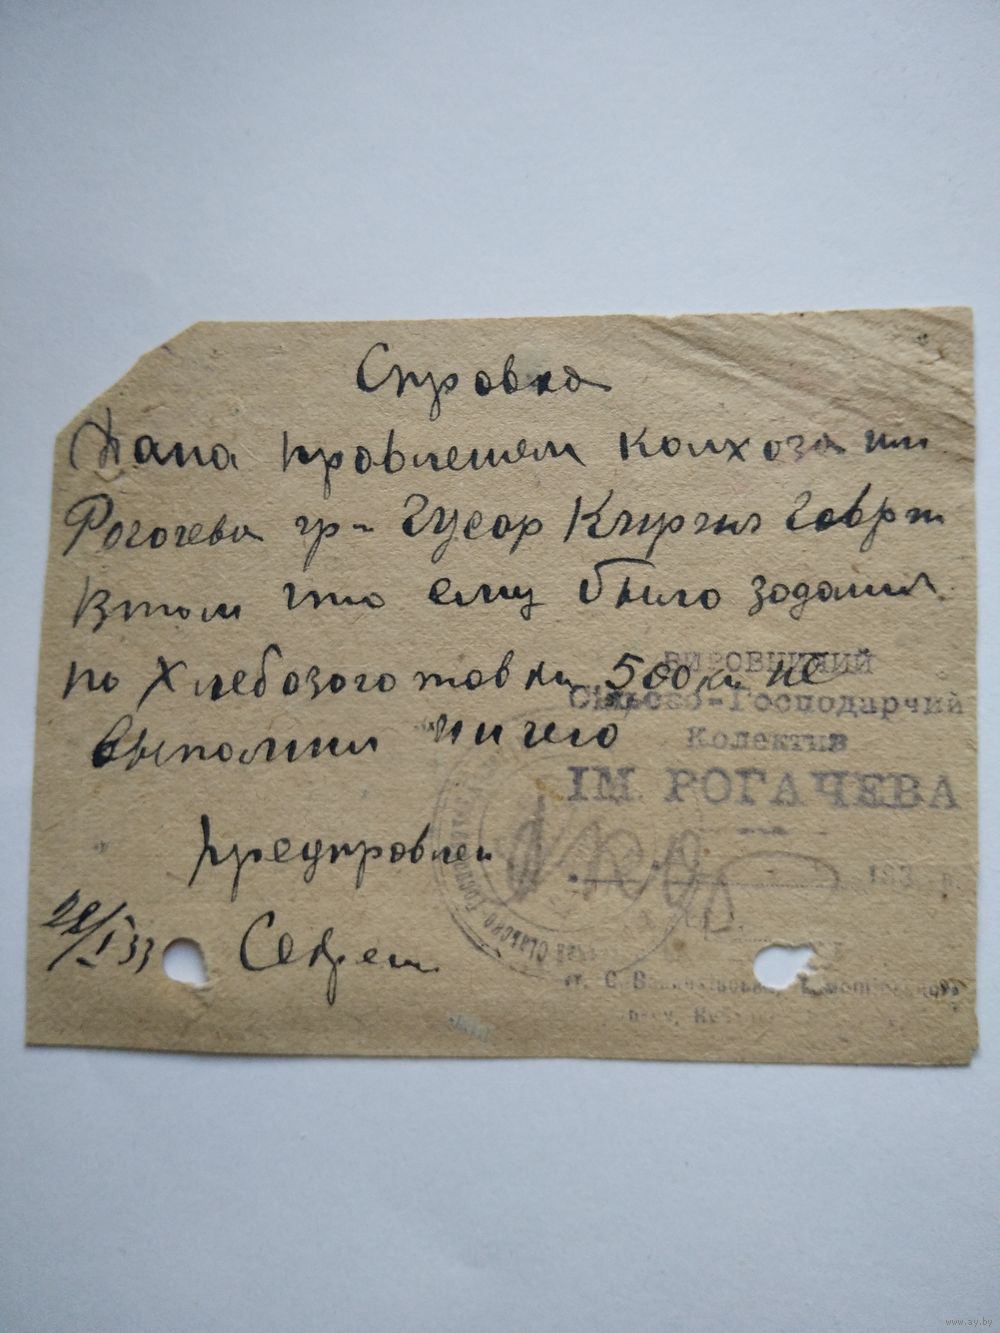 Справка
Дана провлением колхоза им
Рогочева гр-н Гусар Кирил Говри
в том что ему было задании
по Хлебозоготовки 500 кг не
выполнил ничего
предправлен
Секрет
22/I 33
Сільсько-Господарчий
Колектив
ІМ. РОГАЧЕВА
193 р.
www.ay.by